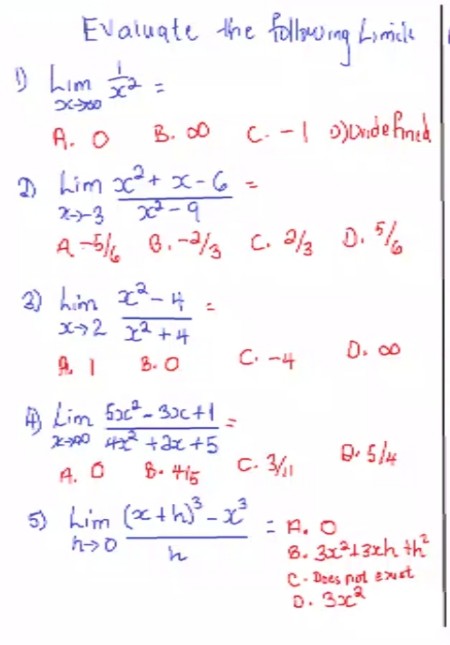 Evaluate the following Limits
1) Lim x→∞ 1/x² =
A. 0 B. ∞ C. -1 D) Undefined
2) Lim x→-3 x² + x - 6 / x² - 9 =
A -5/6 B. -2/3 C. 2/3 D. 5/6
3) Lim x→2 x² - 4 / x² + 4 =
A. 1 B. 0 C. -4 D. ∞
4) Lim x→∞ 5x² - 3x + 1 / 4x² + 2x + 5 =
A. 0 B. 4/5 C. 3/11 D. 5/4
5) Lim h→0 (x + h)³ - x³ / h = A. 0
B. 3x² + 3xh + h²
C. Does not exist
D. 3x²